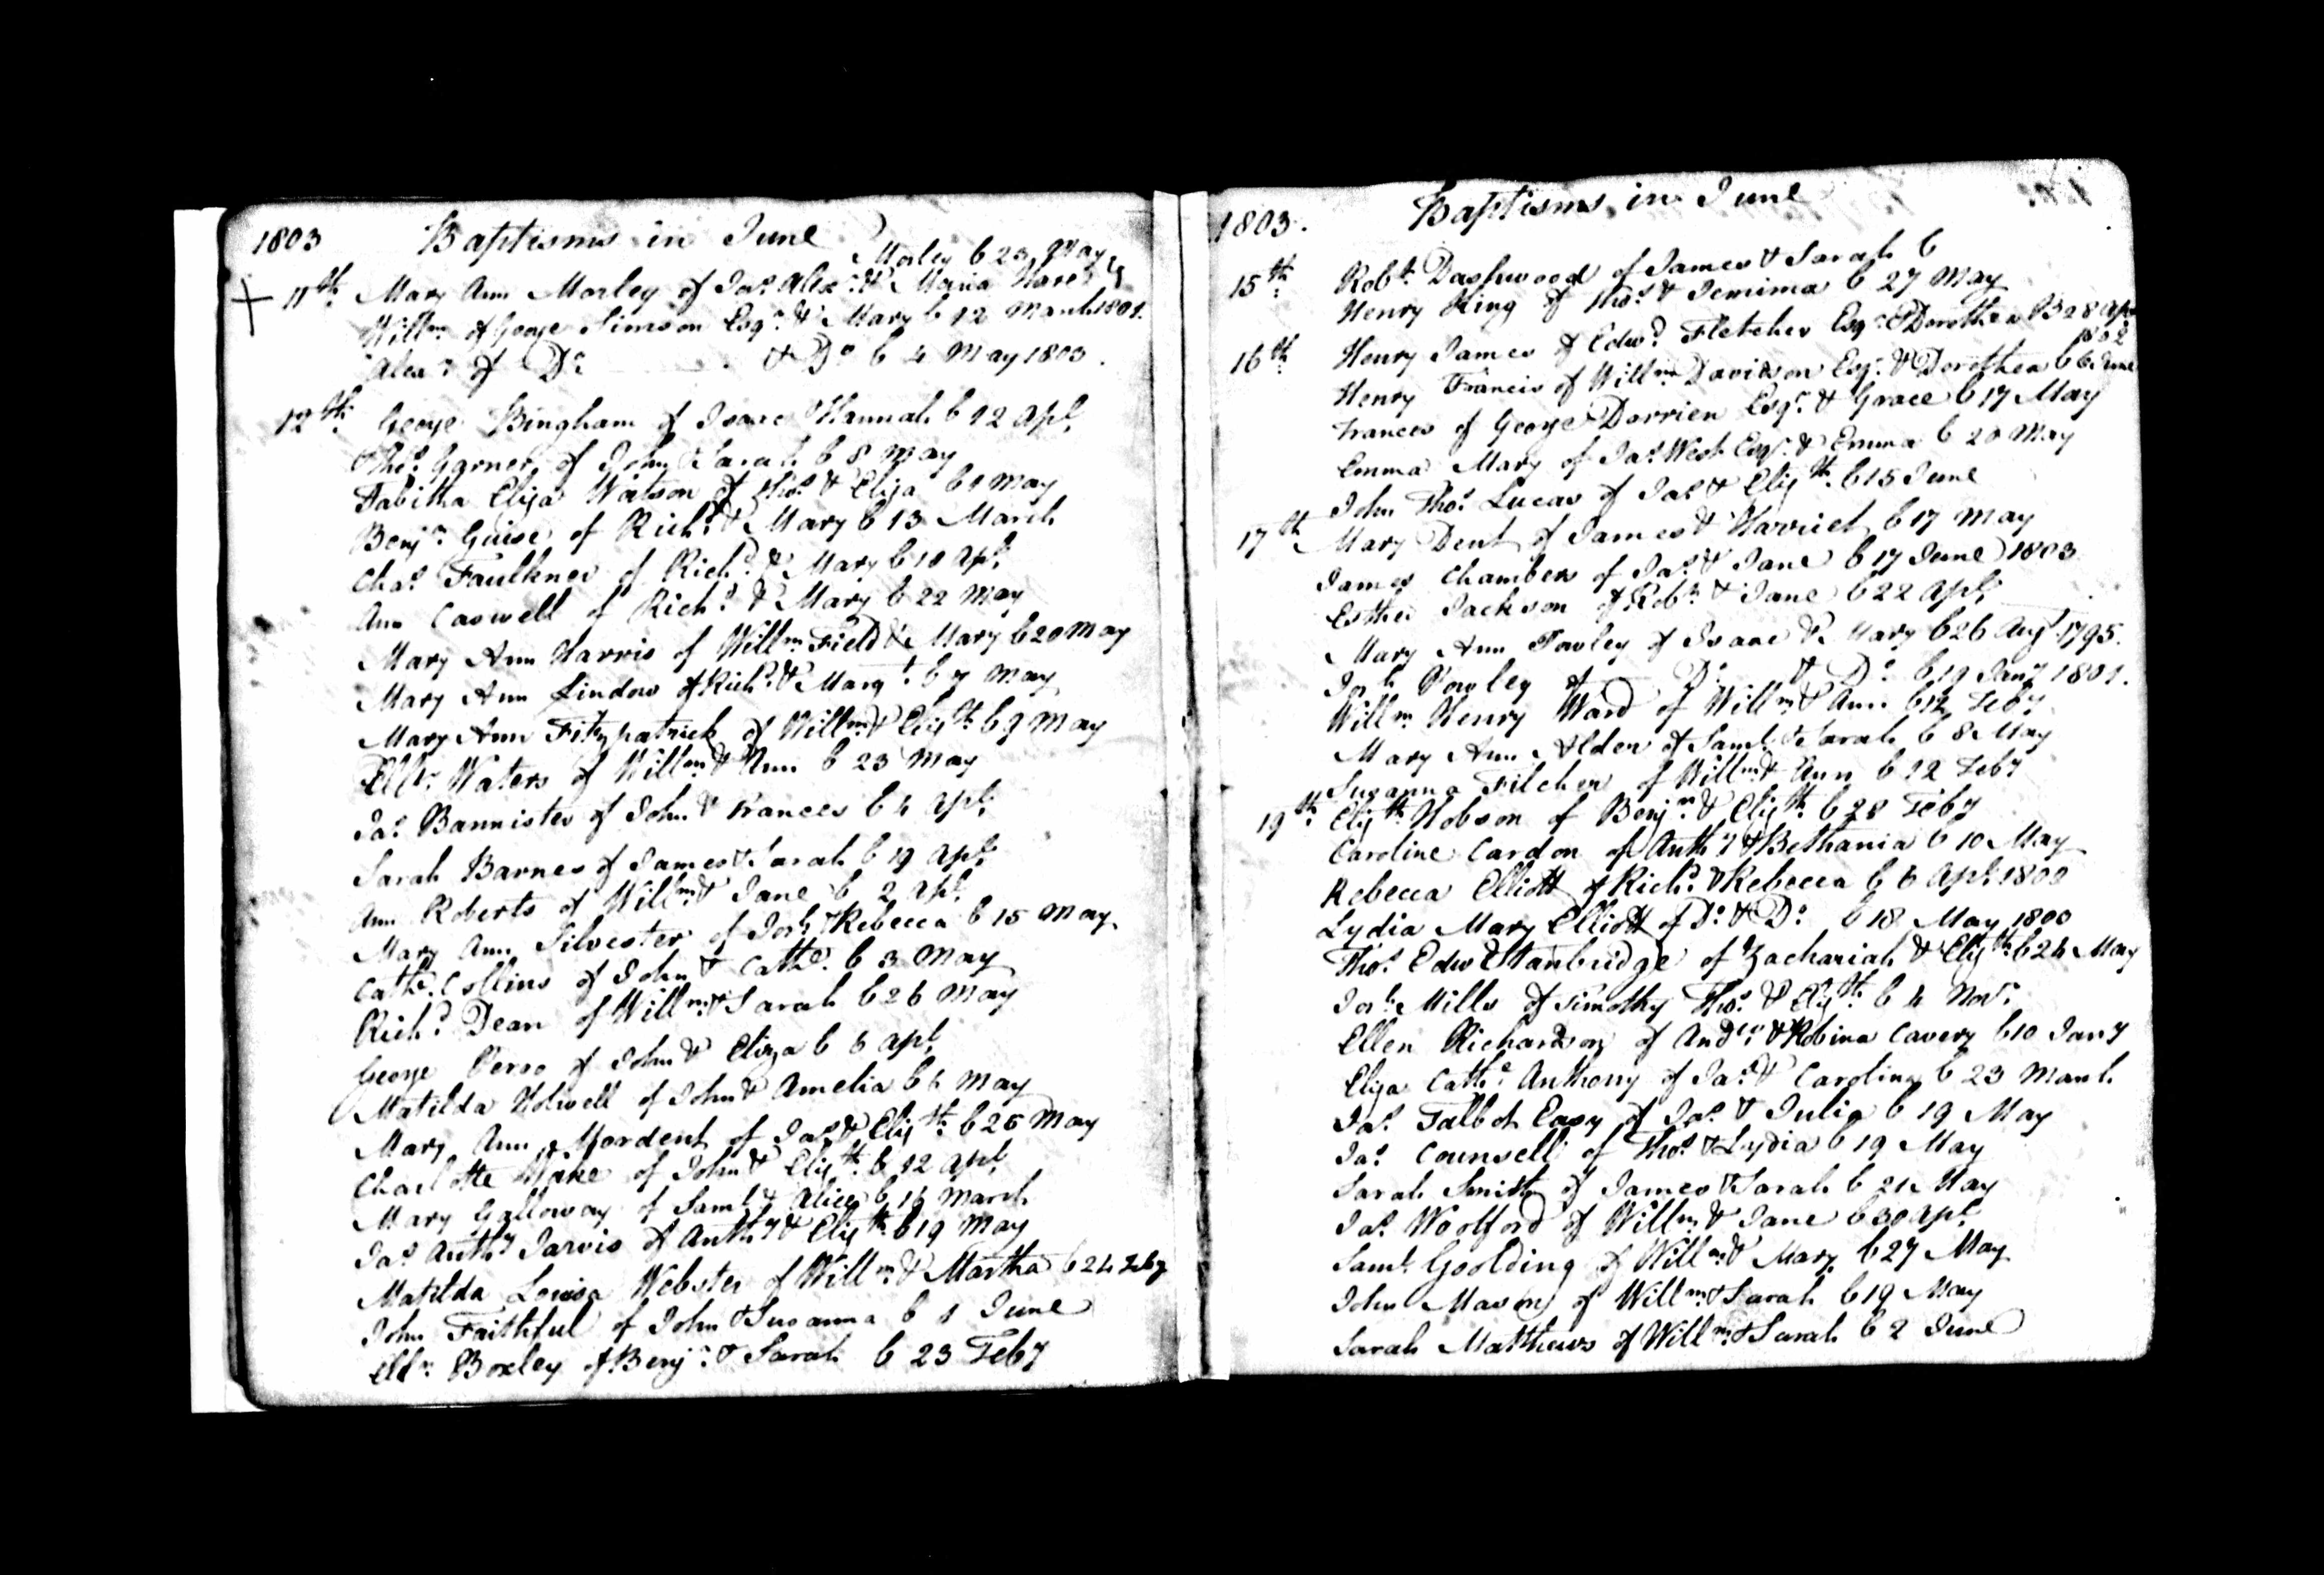 1803 Baptisms in June
Morley b 23 May
11th Mary Ann Morley of Jas. Alexr. & Maria
Willm. of George Simson Esqr. & Mary b 12 March 1801.
Alexr. of Do. & Do. b 4 May 1803.
12th George Bingham of Isaac & Hannah b 12 Apl.
Thos. Garner of John & Sarah b 8 May
Tabitha Eliza Watson of Thos. & Eliza b 1 May
Benjn. Guise of Richd. & Mary b 13 March
Chas. Faulkner of Richd. & Mary b 10 Apl.
Ann Caswell of Richd. & Mary b 22 May
Mary Ann Harris of Willm. Field & Mary b 20 May
Mary Ann Lindow of Richd. & Margt. b 7 May
Mary Ann Fitzpatrick of Willm. & Elizth. b 9 May
Waters of Willm. & Ann b 23 May
Jas. Bannister of John & Frances b 4 Apl.
Sarah Barnes of James & Sarah b 19 Apl.
Ann Roberts of Willm. & Jane b 2 Apl.
Mary Ann Silvester of Josh. & Rebecca b 15 May
Cathe. Collins of John & Cathe. b 3 May
Richd. Dean of Willm. & Sarah b 26 May
George of John & Eliza b 6 Apl.
Matilda Holwell of John & Amelia b 6 May
Mary Ann Mordent of Jas. & Elizth. b 26 May
Charlotte of John & Elizth. b 12 Apl.
Mary Galloway of Saml. & Alice b 16 March
Jas. Anthy. Jarvis of Anthy. & Elizth. b 19 May
Matilda Louisa Webster of Willm. & Martha b 24 Feby
John Faithful of John & Susanna b 1 June
Boxley of Benjn. & Sarah b 23 Feby
1803. Baptisms in June
15th Robt. Dashwood of James & Sarah b
Henry King of Thos. & Jemima b 27 May
16th Henry James of Edwd. Fletcher Esqr. & Dorothea B 28 Apr
1802
Henry Francis of Willm. Davidson Esqr. & Dorothea b 6 June
Frances of George Dorrien Esqr. & Grace b 17 May
Emma Mary of Jas. West Esqr. & Emma b 20 May
John Thos. Lucas of Jas. & Elizth. b 15 June
17th Mary Dent of James & Harriet b 17 May
James Chambers of Jas. & Jane b 17 June 1803
Esther Jackson of Robt. & Jane b 22 Apl.
Mary Ann Powley of Isaac & Mary b 26 Augt. 1795.
Josh. Powley of Do. & Do. b 19 Jany 1801.
Willm. Henry Ward of Willm. & Ann b 12 Feby
Mary Ann Alder of Saml. & Sarah b 8 May
Susanna Filcher of Willm. & Ann b 12 Feby
19th Elizth. Hobson of Benjn. & Elizth. b 28 Feby
Caroline Cardon of Anthy & Bethania b 10 May
Rebecca Elliott of Richd. & Rebecca b 6 Apl. 1800
Lydia Mary Elliott of Do. & Do. b 18 May 1803
Thos. Edw Stanbridge of Zachariah & Elizth. b 24 May
Josh. Mills of Timothy Thos. & Elizth. b 4 Novr.
Ellen Richardson of Andw. & Robina Cavery b 10 Jany
Eliza Cathe. Anthony of Jas. & Caroline b 23 March
Jas. Talbot Easy of Jas. & Julia b 19 May
Jas. Counsell of Thos. & Lydia b 19 May
Sarah Smith of James & Sarah b 21 May
Jas. Woolford of Willm. & Jane b 30 Apl.
Saml. Goolding of Willm. & Mary b 27 May
John Mason of Willm. & Sarah b 19 May
Sarah Matthews of Willm. & Sarah b 2 June